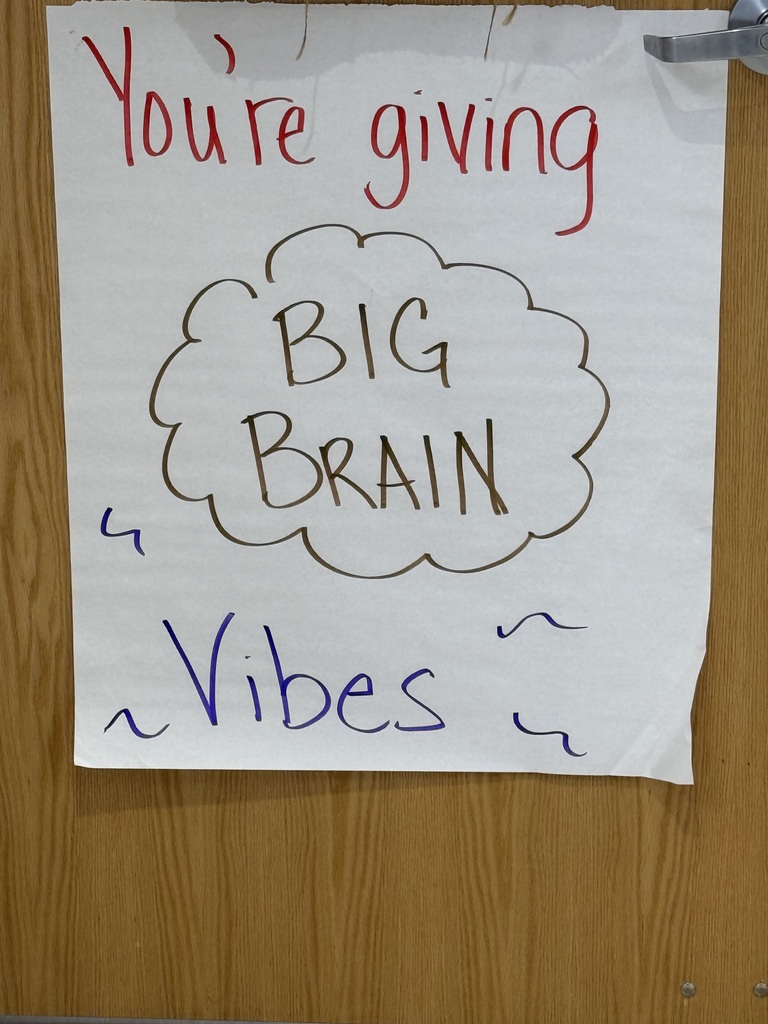 You're giving
BIG
BRAIN
Vibes